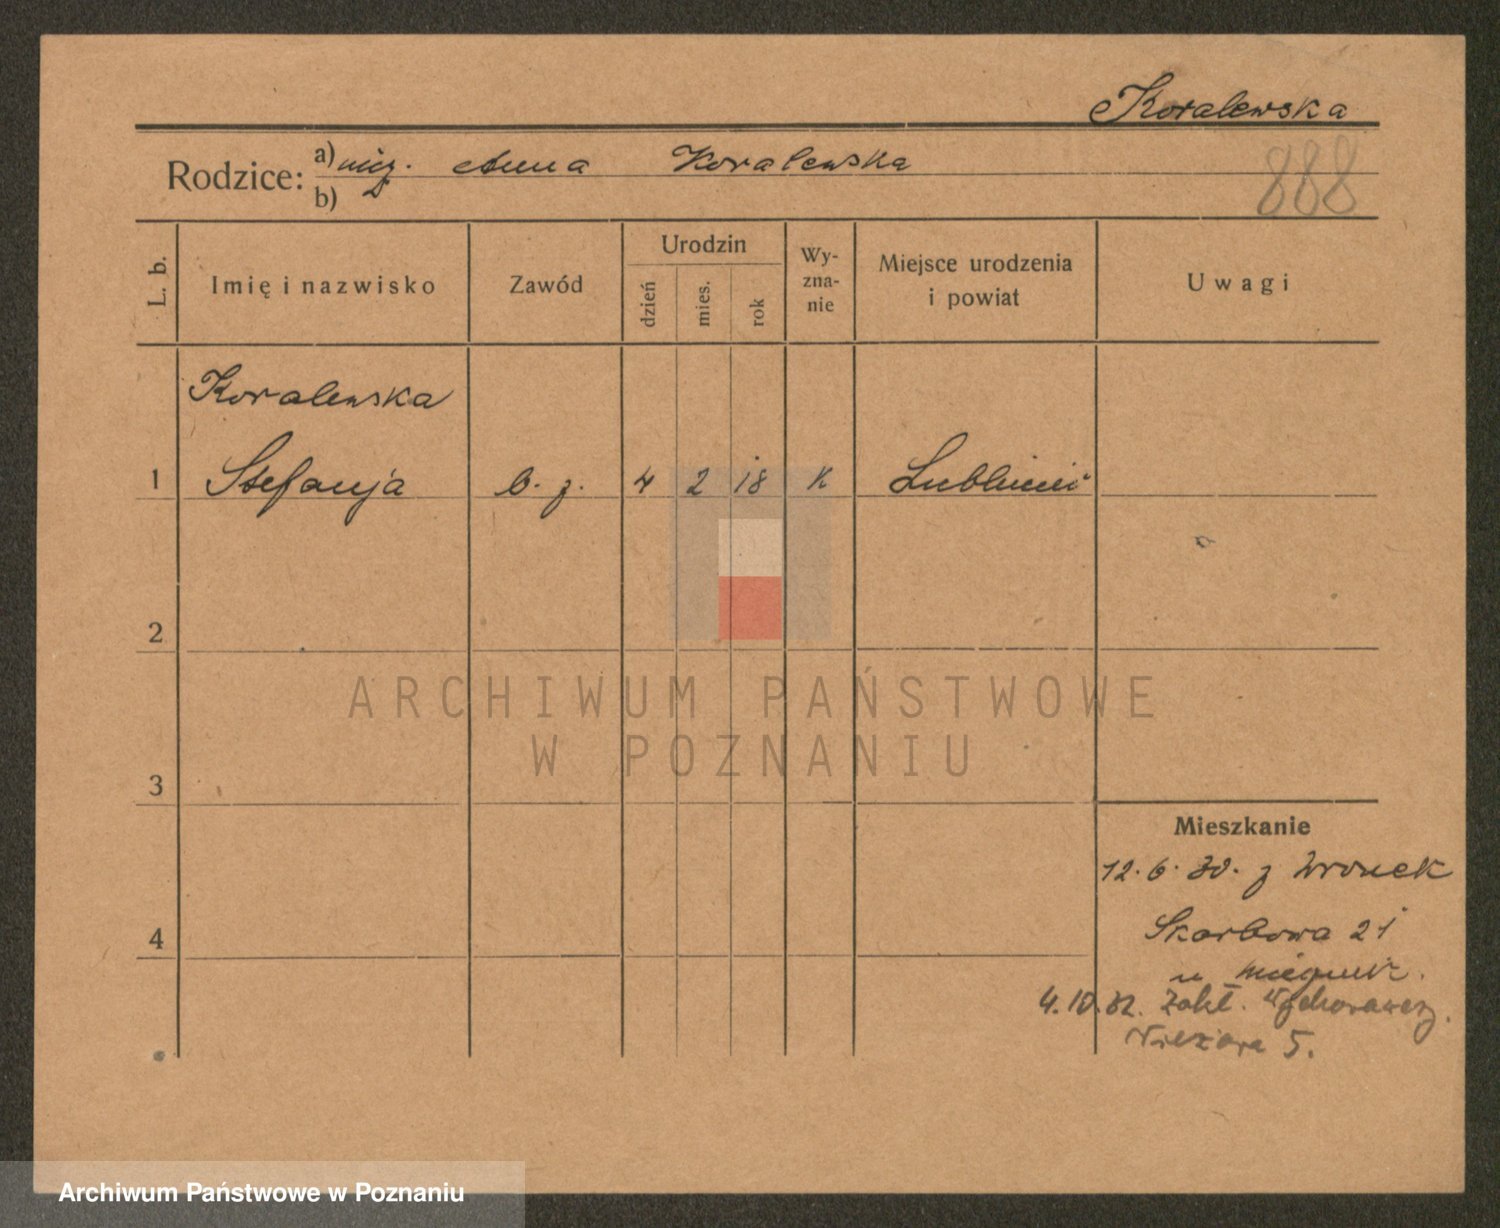 Koralewska
Rodzice: a) niez. Anna Koralewska
b)
888
L. b.
Imię i nazwisko
Zawód
Urodzin
dzień
mies.
rok
Wy-
zna-
nie
Miejsce urodzenia
i powiat
Uwagi
Koralewska
1 Stefanja b. z. 4 2 18 K Lubliniec
2
3
4
Mieszkanie
12. 6. 30. z Wronek
Skarbowa 21
u
4. 10. 32. Zakł. Wychowawcz.
5.
ARCHIWUM PAŃSTWOWE
W POZNANIU
Archiwum Państwowe w Poznaniu